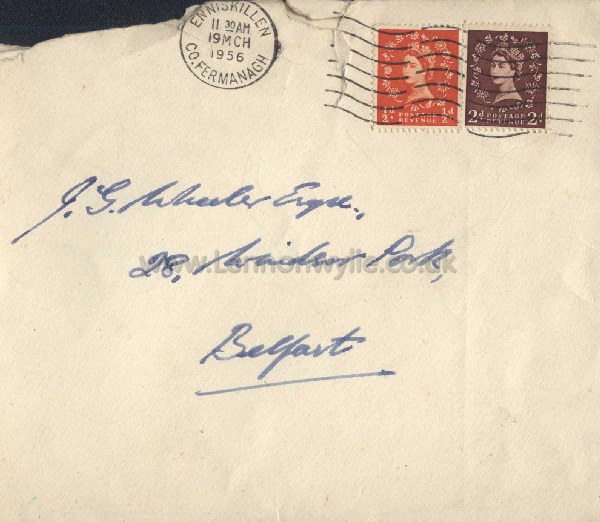 ENNISKILLEN
11 30 AM
19 MCH
1956
CO. FERMANAGH
½d ½d
POSTAGE
REVENUE
2d POSTAGE 2d
REVENUE
J. G. Wheeler Esqre.,
28, Windsor Park,
www.Lennonwylie.co.uk
Belfast